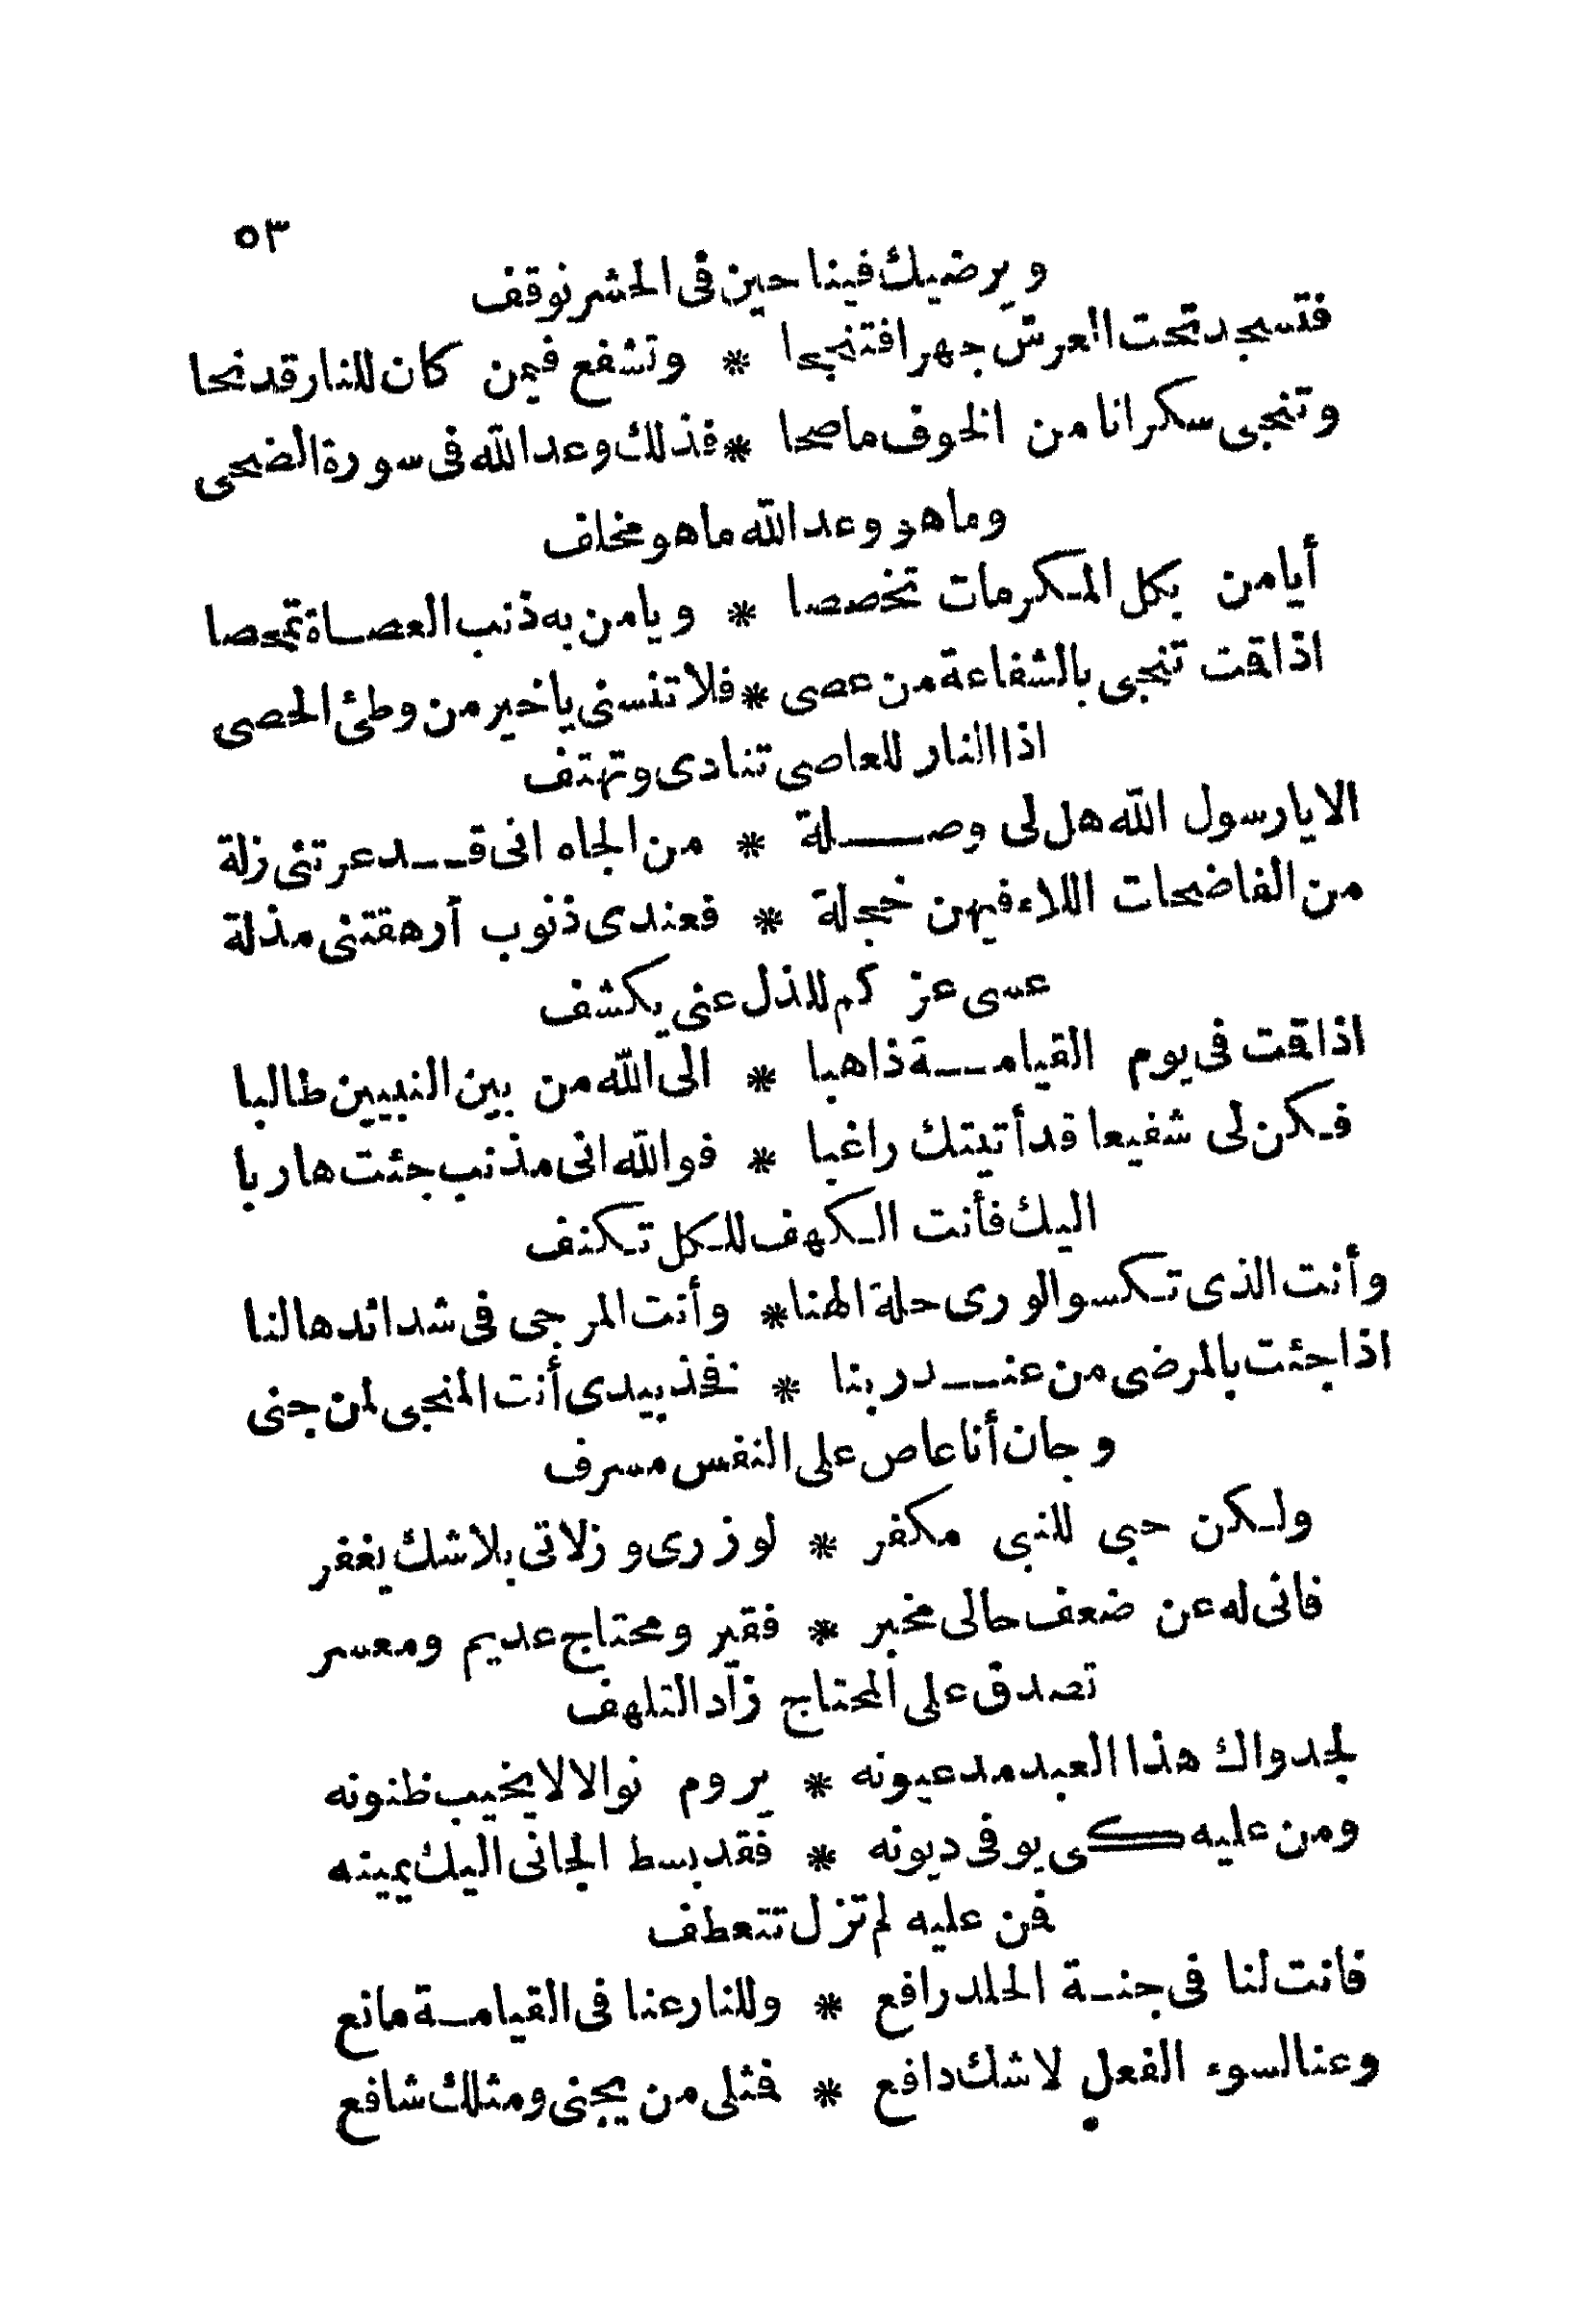 ٥٣
ويرضيك فينا حين فى الحشر نوقف
فتسجد تحت العرش جهرا فتنجحا * وتشفع فيمن كان للنار قد نحا
وتنجى سكرانا من الخوف ما صحا * فذلك وعد الله فى سورة الضحى
وما هو وعد الله ما هو مخلف
أيا من بكل المكرمات تخصصا * ويا من به ذنب العصاة تمحصا
اذا قمت تنجى بالشفاعة من عصى * فلا تنسنى يا خير من وطئ الحصى
اذا النار للعاصى تنادى وتهتف
الا يا رسول الله هل لى وصلة * من الجاه انى قد عرتنى زلة
من الفاضحات اللاء فيهن خجلة * فعندى ذنوب أرهقتنى مذلة
عسى عز كم للذل عنى يكشف
اذا قمت فى يوم القيامة ذاهبا * الى الله من بين النبيين طالبا
فكن لى شفيعا قد أتيتك راغبا * فوالله انى مذنب جئت هاربا
اليك فأنت الكهف للكل تكنف
وأنت الذى تكسو الورى حلة الهنا * وأنت المرجى فى شدائدها لنا
اذا جئت بالمرضى من عند ربنا * فخذ بيدى أنت المنجى لمن جنى
وجان أنا عاص على النفس مسرف
ولكن حبى للنبى مكفر * لوزرى وزلاتى بلا شك يغفر
فانى له عن ضعف حالى مخبر * فقير ومحتاج عديم ومعسر
تصدق على المحتاج زاد التلهف
لجدواك هذا العبد مد عيونه * يروم نوالا لا يخيب ظنونه
ومن عليه كى يوفى ديونه * فقد بسط الجانى اليك يمينه
فمن عليه لم تزل تتعطف
فانت لنا فى جنة الخلد رافع * وللنار عنا فى القيامة مانع
وعنا لسوء الفعل لا شك دافع * فمثلى من يجنى ومثلك شافع